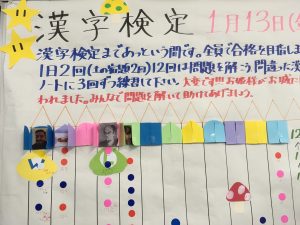 漢字検定 1月13日(
漢字検定まであっという間です。全員で合格を目指しま
1日2回(土の宿題2月)12回は問題を解う間違った漢
ノートに3回ずつ練習して下さい。大変です!!!お姫様がお城に
われました。みんなで問題を解いて助けてあげましょう。